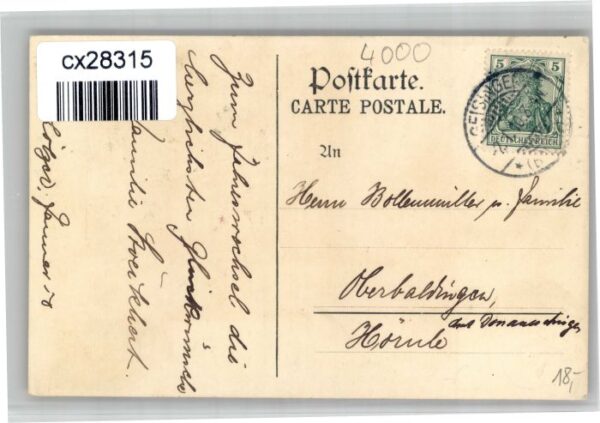 cx28315
4000
Postkarte.
CARTE POSTALE.
5 5
DEUTSCHES REICH
GEISINGEN
An
Herrn Bollenmüller u. Familie
Oberbaldingen,
amt Donaueschingen
Hörnle
18,-
Zum Jahreswechsel die
herzlichsten Glückwünsche
Familie
Januar